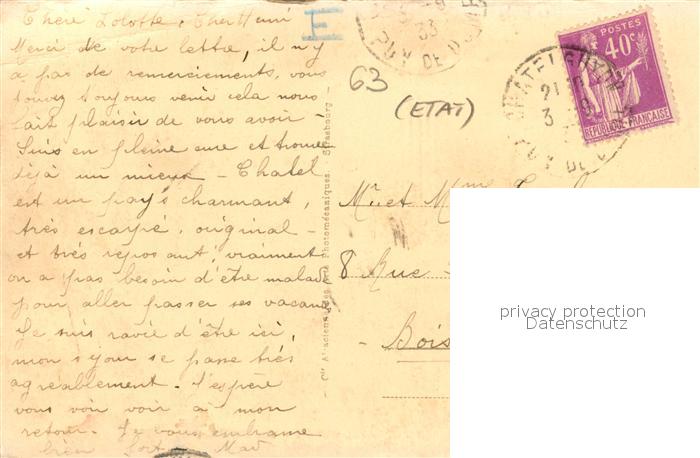 Chère Lolotte, Cher Henri
Merci de votre lettre, il n'y
a pas de remerciements, vous
pouvez toujours venir cela nous
fait plaisir de vous avoir -
Suis en pleine cure et trouve
déjà un mieux - Chatel
est un pays charmant,
très escarpé, original -
et très reposant, vraiment
on a pas besoin d'être malade
pour aller passer ses vacances
Je suis ravie d'être ici,
mon séjour se passe très
agréablement. J'espère
vous voir à mon
retour. Je vous embrame
bien fort - Mad
E
33
PUY DE DOME
63
(ETAT)
CHATELGUYON
21
3
PUY DE DOME
POSTES
40c
RÉPUBLIQUE FRANÇAISE
Cie Alsacienne des Arts Photomécaniques. - Strasbourg -
Mr et Mme
8 Rue
- Bois
privacy protection
Datenschutz